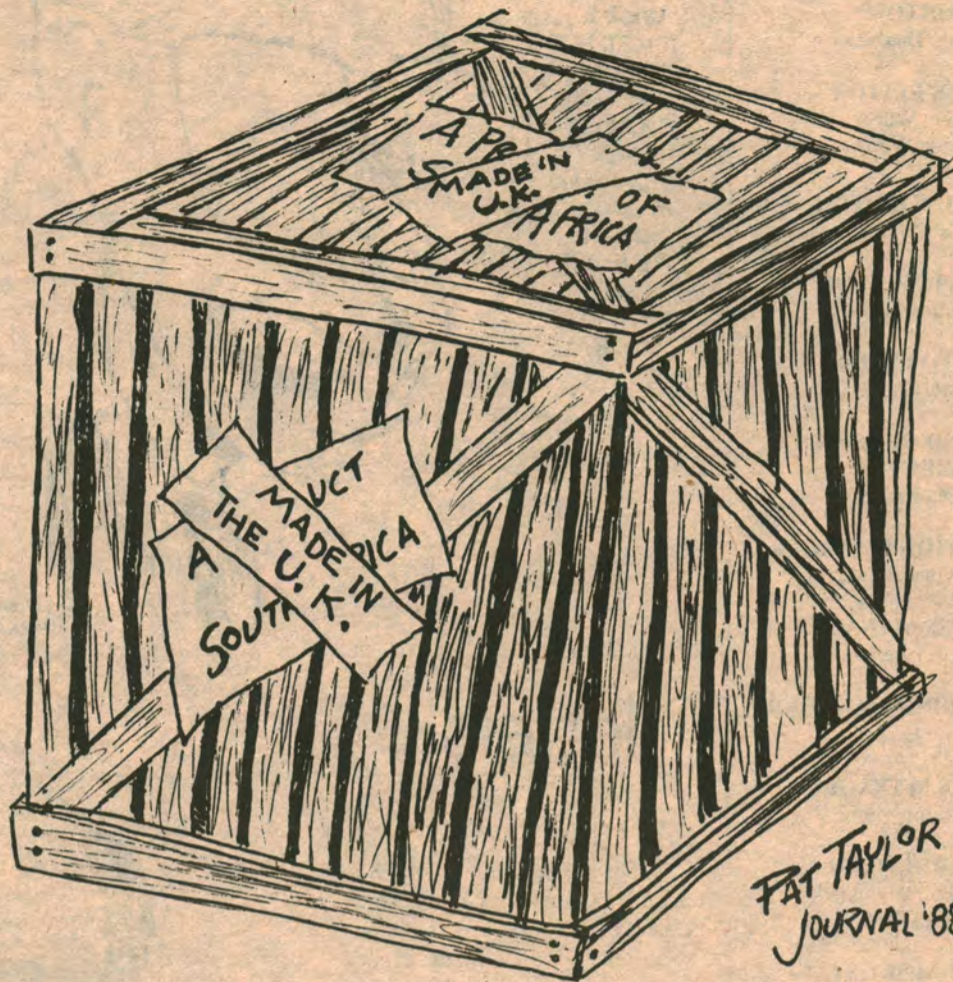 A PR
S
MADE IN
U.K.
OF
AFRICA
UCT
MADE IN
THE U.K.
A
RICA
SOUTH
PAT TAYLOR
JOURNAL '88